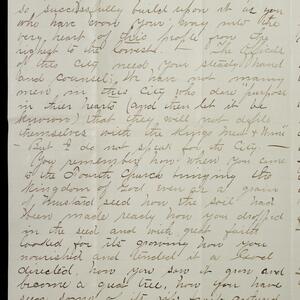 so successfully build upon it as you
who have won your way into the
very heart of this people from the
highest to the lowest. — The Officials
of this City need your steady hand
and counsel; We have not many
men in this City who dare "purpose
in their hearts (and then let it be
known) that they will not defile
themselves with the Kings Meat & Wine"
— But I do not speak for the City —
You remember how when you came
to the Fourth Church bringing the
Kingdom of God, even as a grain
of mustard seed how the soil had
been made ready how you dropped
in the seed and with great faith
looked for its growing how you
nourished and tended it as God
directed, how you saw it grow and
become a great tree, how you have
seen some of its